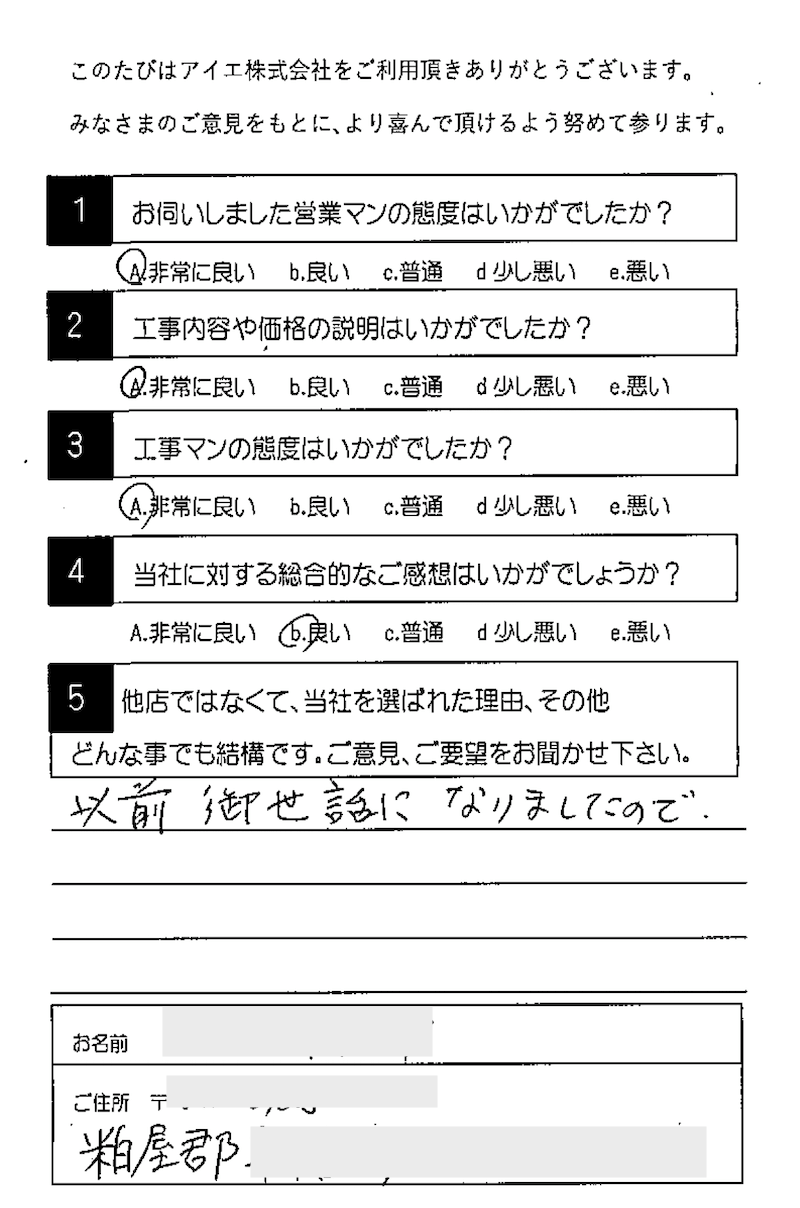 このたびはアイエ株式会社をご利用頂きありがとうございます。
みなさまのご意見をもとに、より喜んで頂けるよう努めて参ります。
1 お伺いしました営業マンの態度はいかがでしたか？
A.非常に良い b.良い c.普通 d 少し悪い e.悪い
2 工事内容や価格の説明はいかがでしたか？
A.非常に良い b.良い c.普通 d 少し悪い e.悪い
3 工事マンの態度はいかがでしたか？
A.非常に良い b.良い c.普通 d 少し悪い e.悪い
4 当社に対する総合的なご感想はいかがでしょうか？
A.非常に良い b.良い c.普通 d 少し悪い e.悪い
5 他店ではなくて、当社を選ばれた理由、その他
どんな事でも結構です。ご意見、ご要望をお聞かせ下さい。
以前御世話になりましたので.
お名前
ご住所 〒
粕屋郡